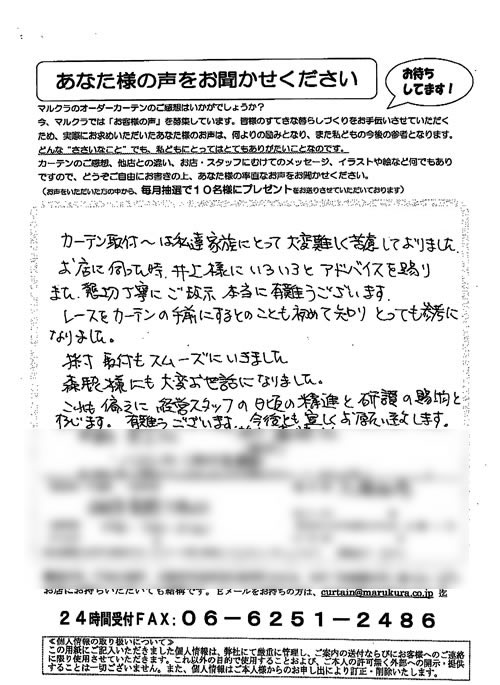 あなた様の声をお聞かせください
お待ち
してます!
マルクラのオーダーカーテンのご感想はいかがでしょうか?
今、マルクラでは「お客様の声」を募集しています。皆様のすてきな暮らしづくりをお手伝いさせていただく
ため、実際にお求めいただいたあなた様のお声は、何よりの励みとなり、また私どもの今後の参考となります。
どんな“ささいなこと”でも、私どもにとってはとてもありがたいことなのです。
カーテンのご感想、他店との違い、お店・スタッフにむけてのメッセージ、イラストや絵など何でもあり
ですので、どうぞご自由にお書きの上、あなた様の率直なお声をお聞かせください。
(お声をいただいた方の中から、毎月抽選で10名様にプレゼントをお送りさせていただいております)
カーテン取付へは私達家族にとって大変難しく苦慮しておりました。
お店に伺った時、井上様にいろいろとアドバイスを賜り
また、懇切丁寧にご教示 本当に有難うございます。
レースをカーテンの手前にするとのことも初めて知り とっても参考に
なりました。
採寸 取付もスムーズにいきました
様にも大変お世話になりました。
これも偏えに 経営スタッフの日頃の精進と研讃の賜物と
存じます。有難うございます。今後とも宜しくお願い致します。
お店にお持ちいただいても結構です。Eメールをお持ちの方は、curtain@marukura.co.jp 迄
24時間受付FAX:06-6251-2486
≪個人情報の取り扱いについて≫
この用紙にご記入いただきました個人情報は、弊社にて厳重に管理し、ご案内の送付ならびにお客様へのご連絡
に限り使用させていただきます。これ以外の目的で使用することおよび、ご本人の許可無く外部への開示・提供
することは一切ございません。また、個人情報はご本人様からのお申し出により訂正・削除いたします。